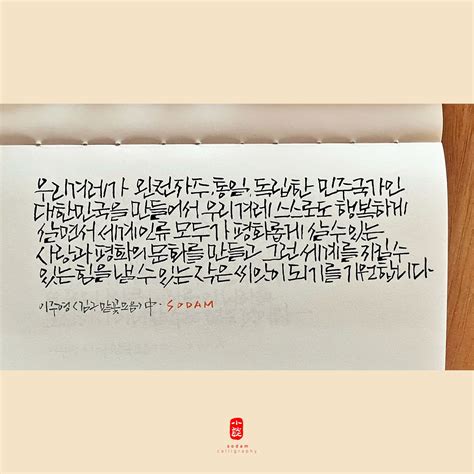 우리겨레가 완전자주,통일,독립한 민주국가인
대한민국을 만들어서 우리겨레 스스로도 행복하게
살면서 세계인류 모두가 평화롭게 살수있는
사랑과 평화의 문화를 만들고 그런 세계를 지킬수
있는 힘을 낼 수 있는 작은 씨앗이 되기를 기원합니다.
이주영 <김구 말꽃모음> 中 · SODAM
小談
sodam
calligraphy